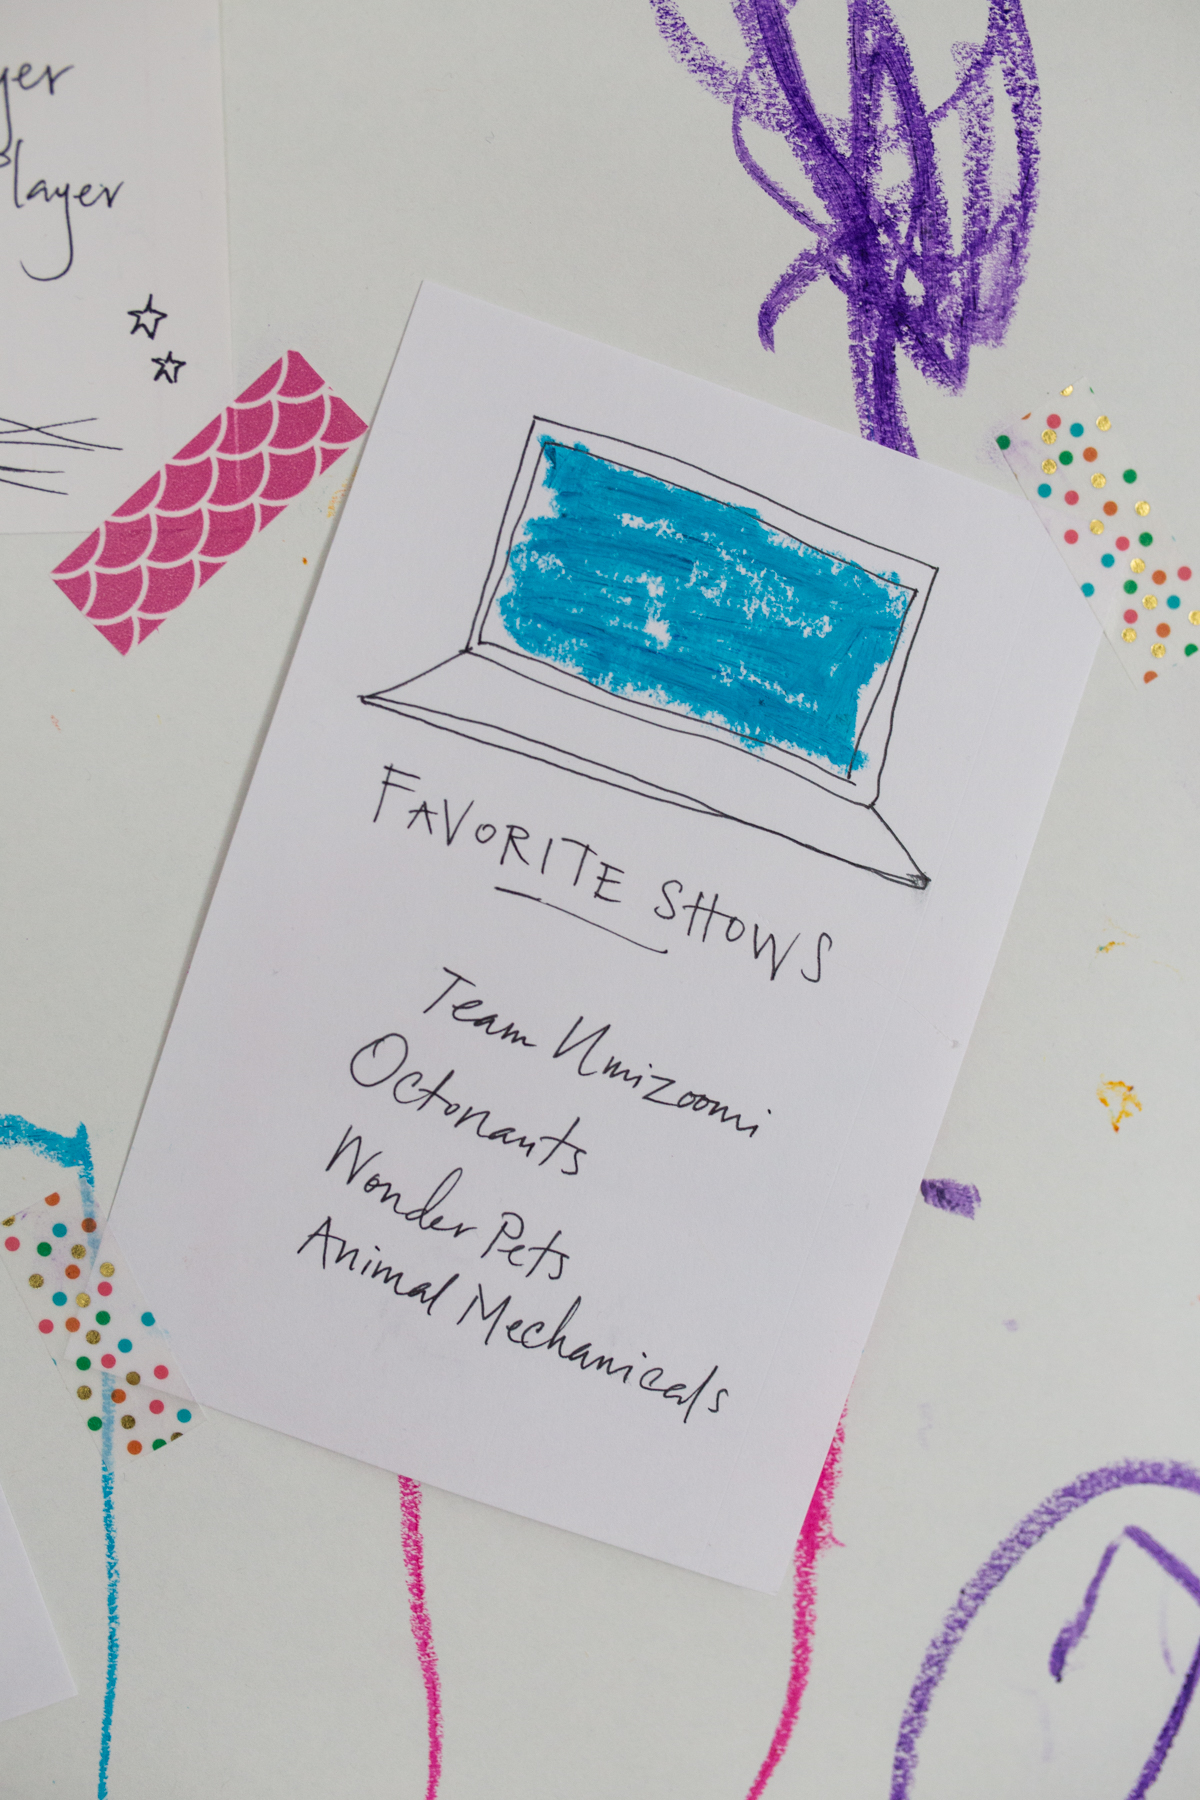 Player
FAVORITE SHOWS
Team Umizoomi
Octonauts
Wonder Pets
Animal Mechanicals